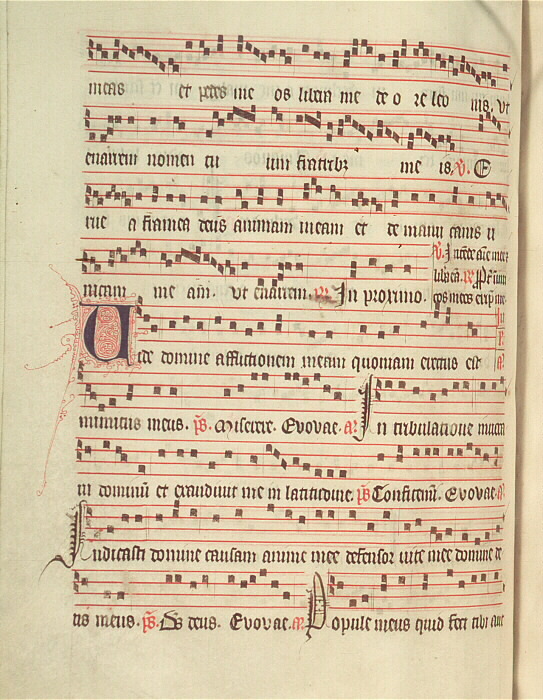 meas et pedes me os libera me de o re leo nis. Vt
enarrem nomen tu um fratribz me is. V. E
rue a framea deus animam meam et de manu canis u
nicam me am. Vt enarrem. In proximo.
Vide domine afflictionem meam quoniam erectus est
inimicus meus. ps. Miserere. Evovae. a. In tribulatione inuoca
ui dominū et exaudiuit me in latitudine. ps Confitemī. Evovae. a.
Iudicasti domine causam anime mee defensor uite mee domine de
us meus. ps. Ds deus. Evovae. a. Popule meus quid feci tibi aut